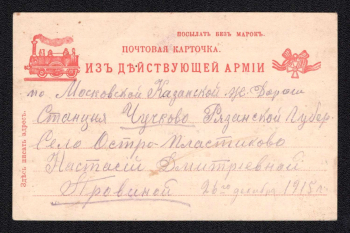 посылать безъ марокъ.
ПОЧТОВАЯ КАРТОЧКА.
ИЗЪ ДѢЙСТВУЮЩЕЙ АРМІИ
по Московской Казанской ж. Дороги
Станция Чучково Рязанской Губер-
Село Остро-Пластиково
Настасіи Дмитріевной
Прониной 26го декабр 1915 г
Здѣсь писать адресъ.